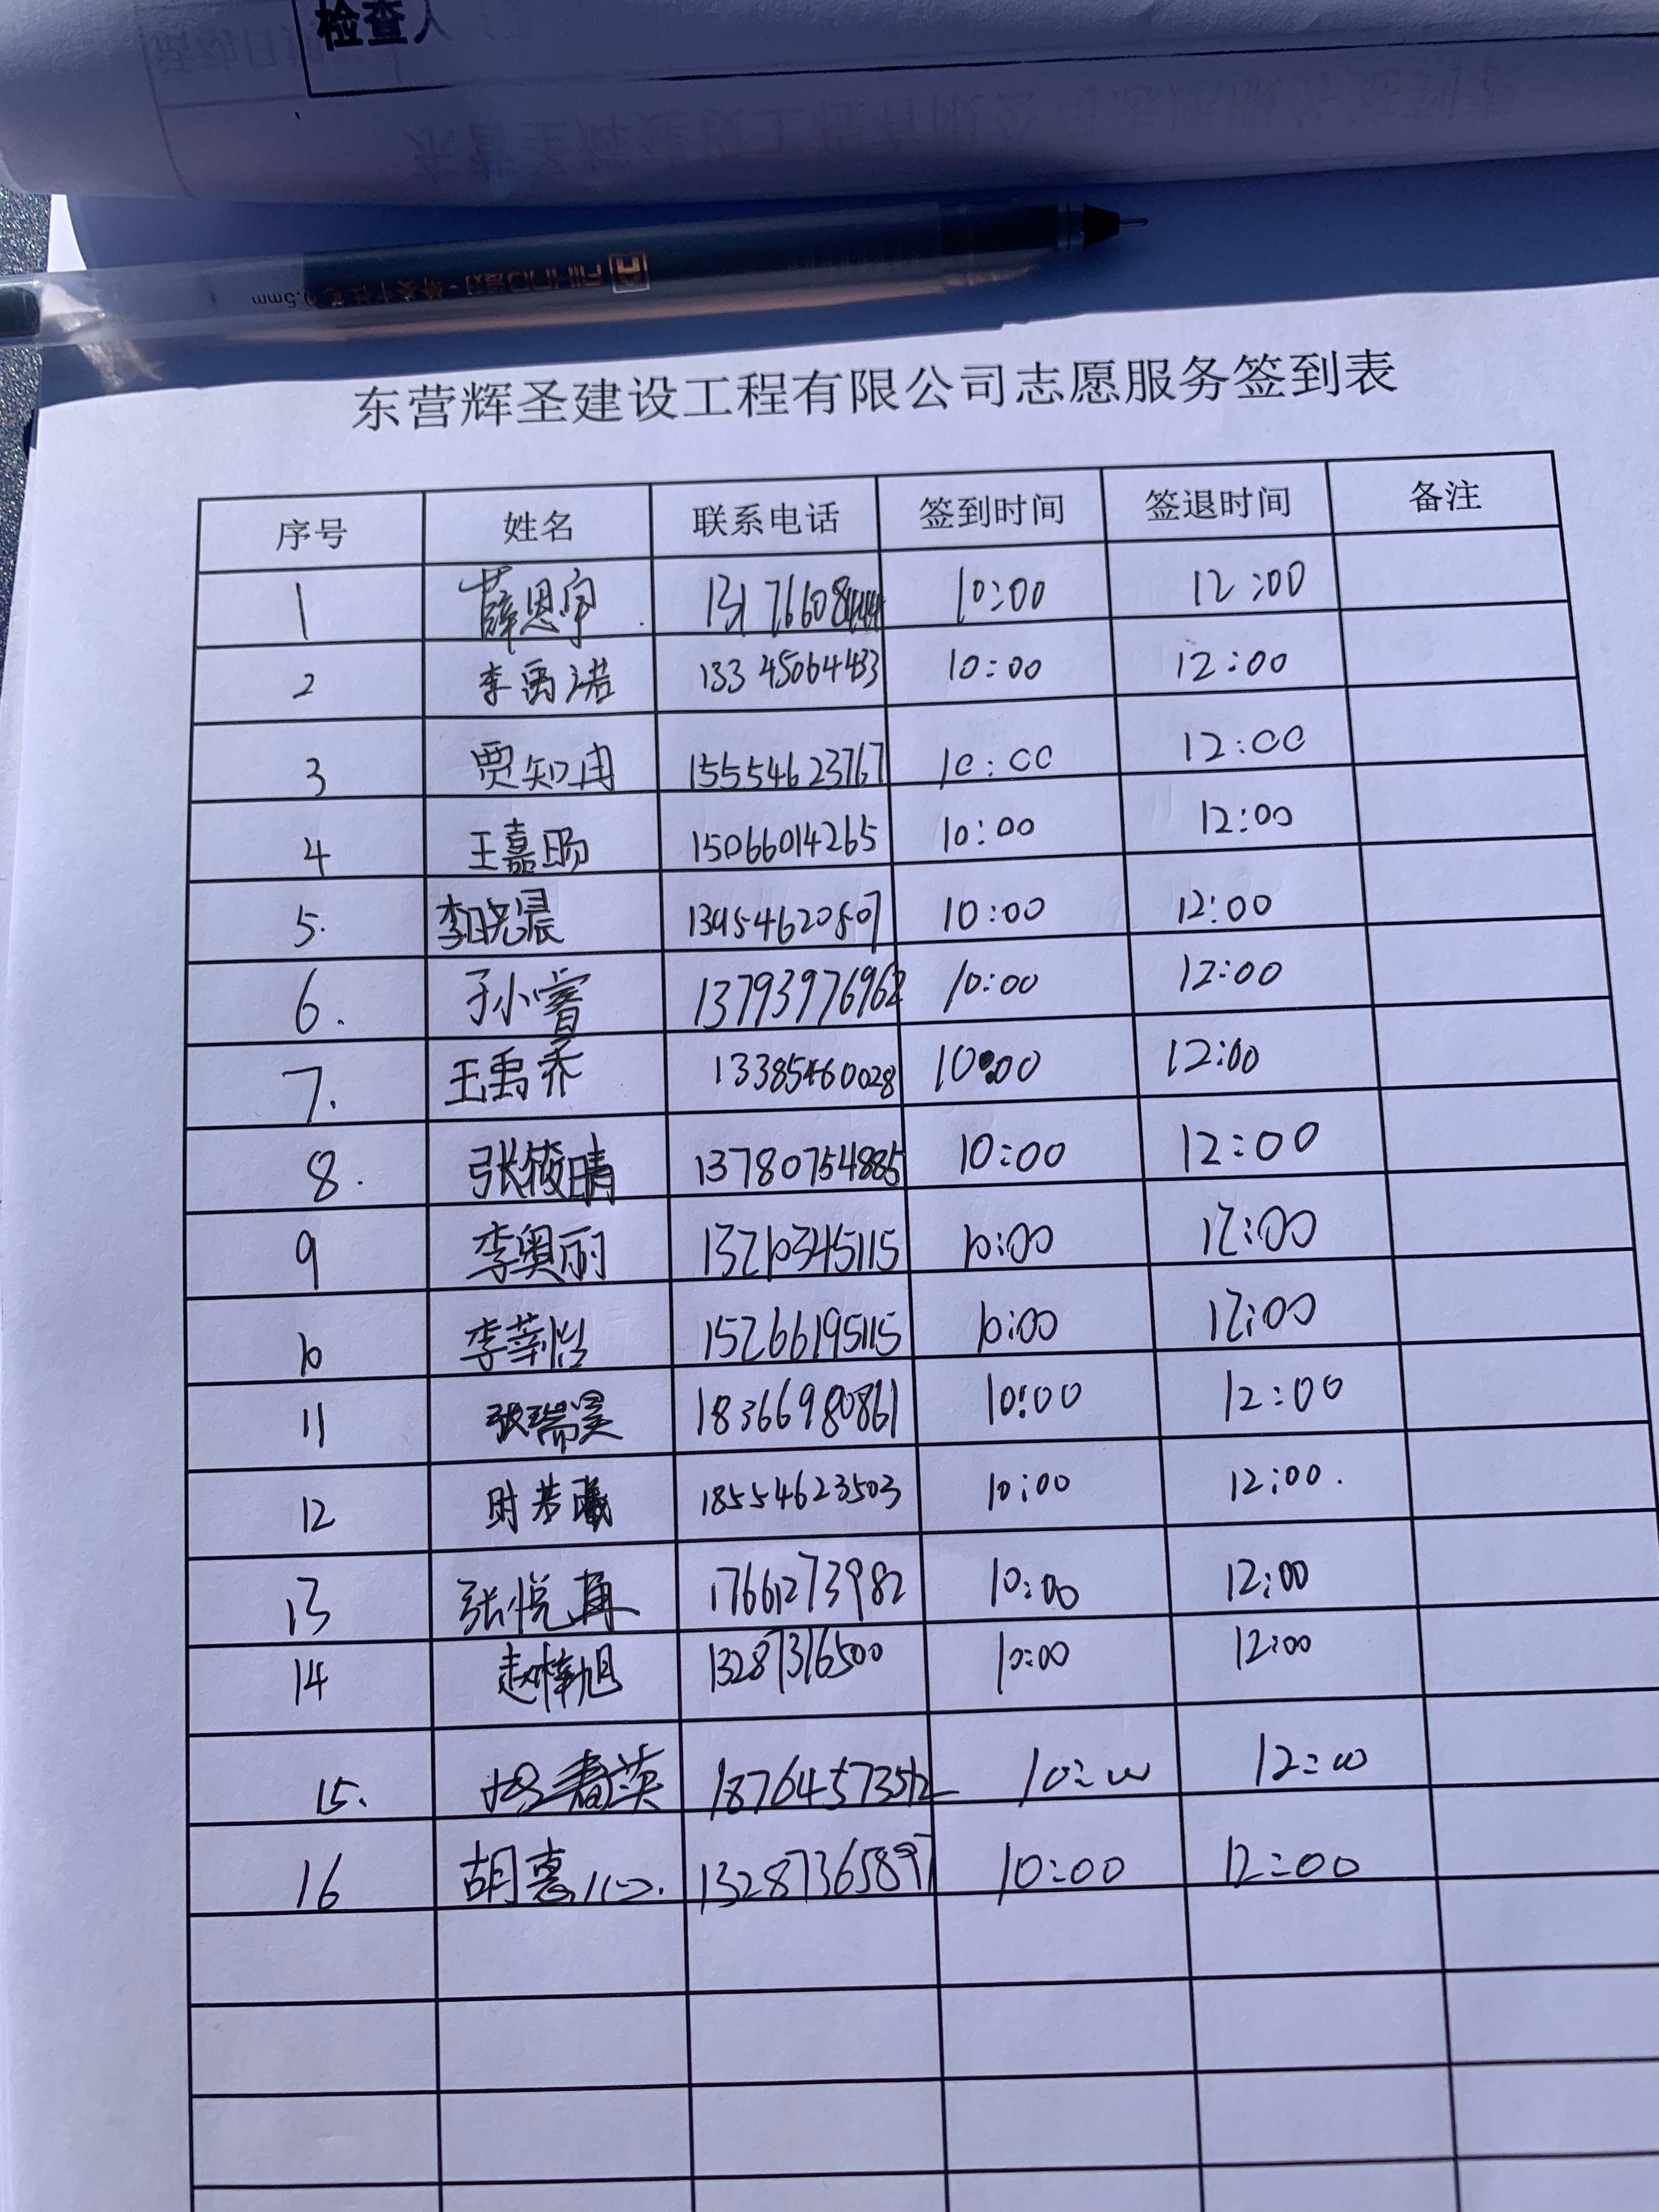 检查人
0.5mm
东营辉圣建设工程有限公司志愿服务签到表
序号 姓名 联系电话 签到时间 签退时间 备注
1 薛恩宇 10:00 12:00
2 李禹诺 13345064433 10:00 12:00
3 贾知冉 15554623767 10:00 12:00
4 王嘉旸 15066014265 10:00 12:00
5. 李晓晨 13954620507 10:00 12:00
6. 于小睿 13793976962 10:00 12:00
7. 王禹乔 13385460028 10:00 12:00
8. 张筱晴 13780754885 10:00 12:00
9 李奥丽 13210345115 10:00 12:00
10 李莘怡 15266195115 10:00 12:00
11 张瑞昊 18366980861 10:00 12:00
12 时若曦 18554623503 10:00 12:00.
13 张悦再 17661273982 10:00 12:00
14 赵梓旭 13287316500 10:00 12:00
15. 春英 18764573512 10:00 12:00
16 胡惠心. 13287365897 10:00 12:00